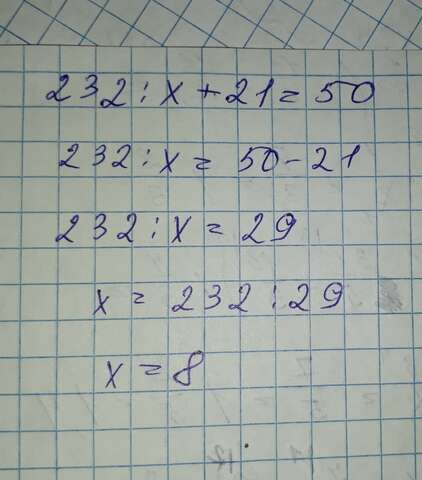 232 : x + 21 = 50
232 : x = 50 - 21
232 : x = 29
x = 232 : 29
x = 8